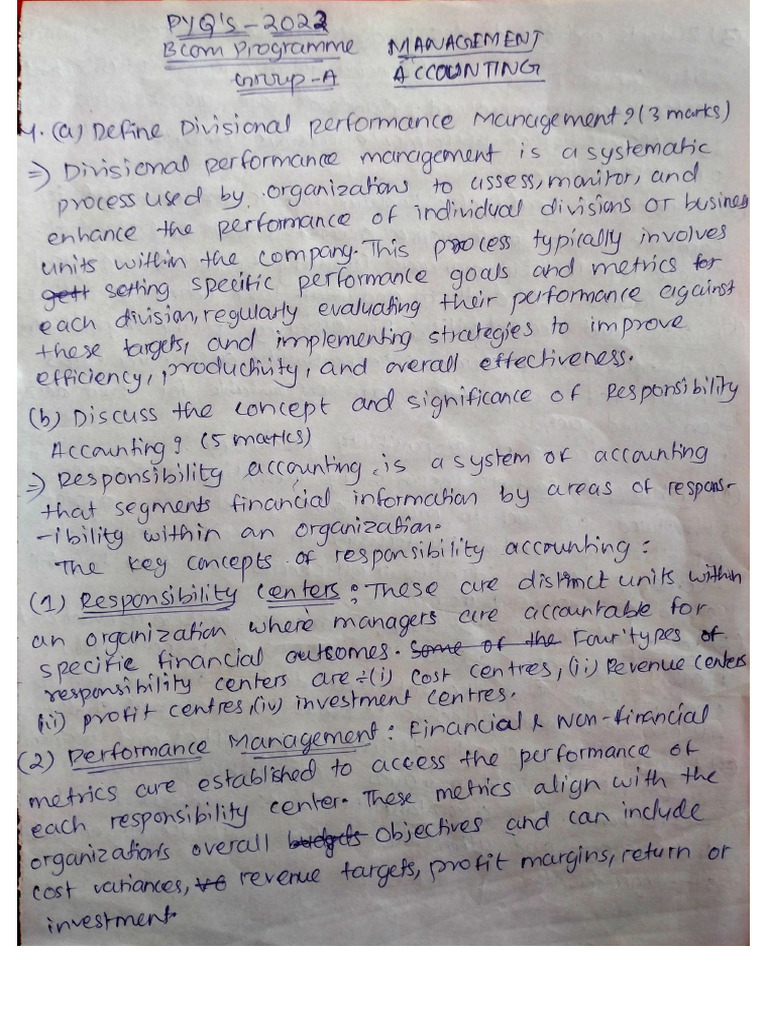 PYQ'S - 2022
Bcom Programme
MANAGEMENT
Group-A
ACCOUNTING
1. (a) Define Divisional performance Management? (3 marks)
⇒ Divisional performance management is a systematic
process used by organizations to assess, monitor, and
enhance the performance of individual divisions or busines
units within the company. This process typically involves
gett setting specific performance goals and metrics for
each division, regularly evaluating their performance against
these targets, and implementing strategies to improve
efficiency, productivity, and overall effectiveness.
(b) Discuss the concept and significance of Responsibility
Accounting? (5 marks)
⇒ Responsibility accounting, is a system of accounting
that segments financial information by areas of respons-
-ibility within an organization.
The key concepts of responsibility accounting:
(1) Responsibility Centers: These are distinct units within
an organization where managers are accountable for
specific financial outcomes. Some of the Four types of
responsibility centers are ÷ (i) Cost centres, (ii) Revenue centers
(iii) profit centres, (iv) investment centres.
(2) Performance Management: Financial & Non-financial
metrics are established to access the performance of
each responsibility center. These metrics align with the
organization's overall budgets objectives and can include
cost variances, revenue targets, profit margins, return or
investment.